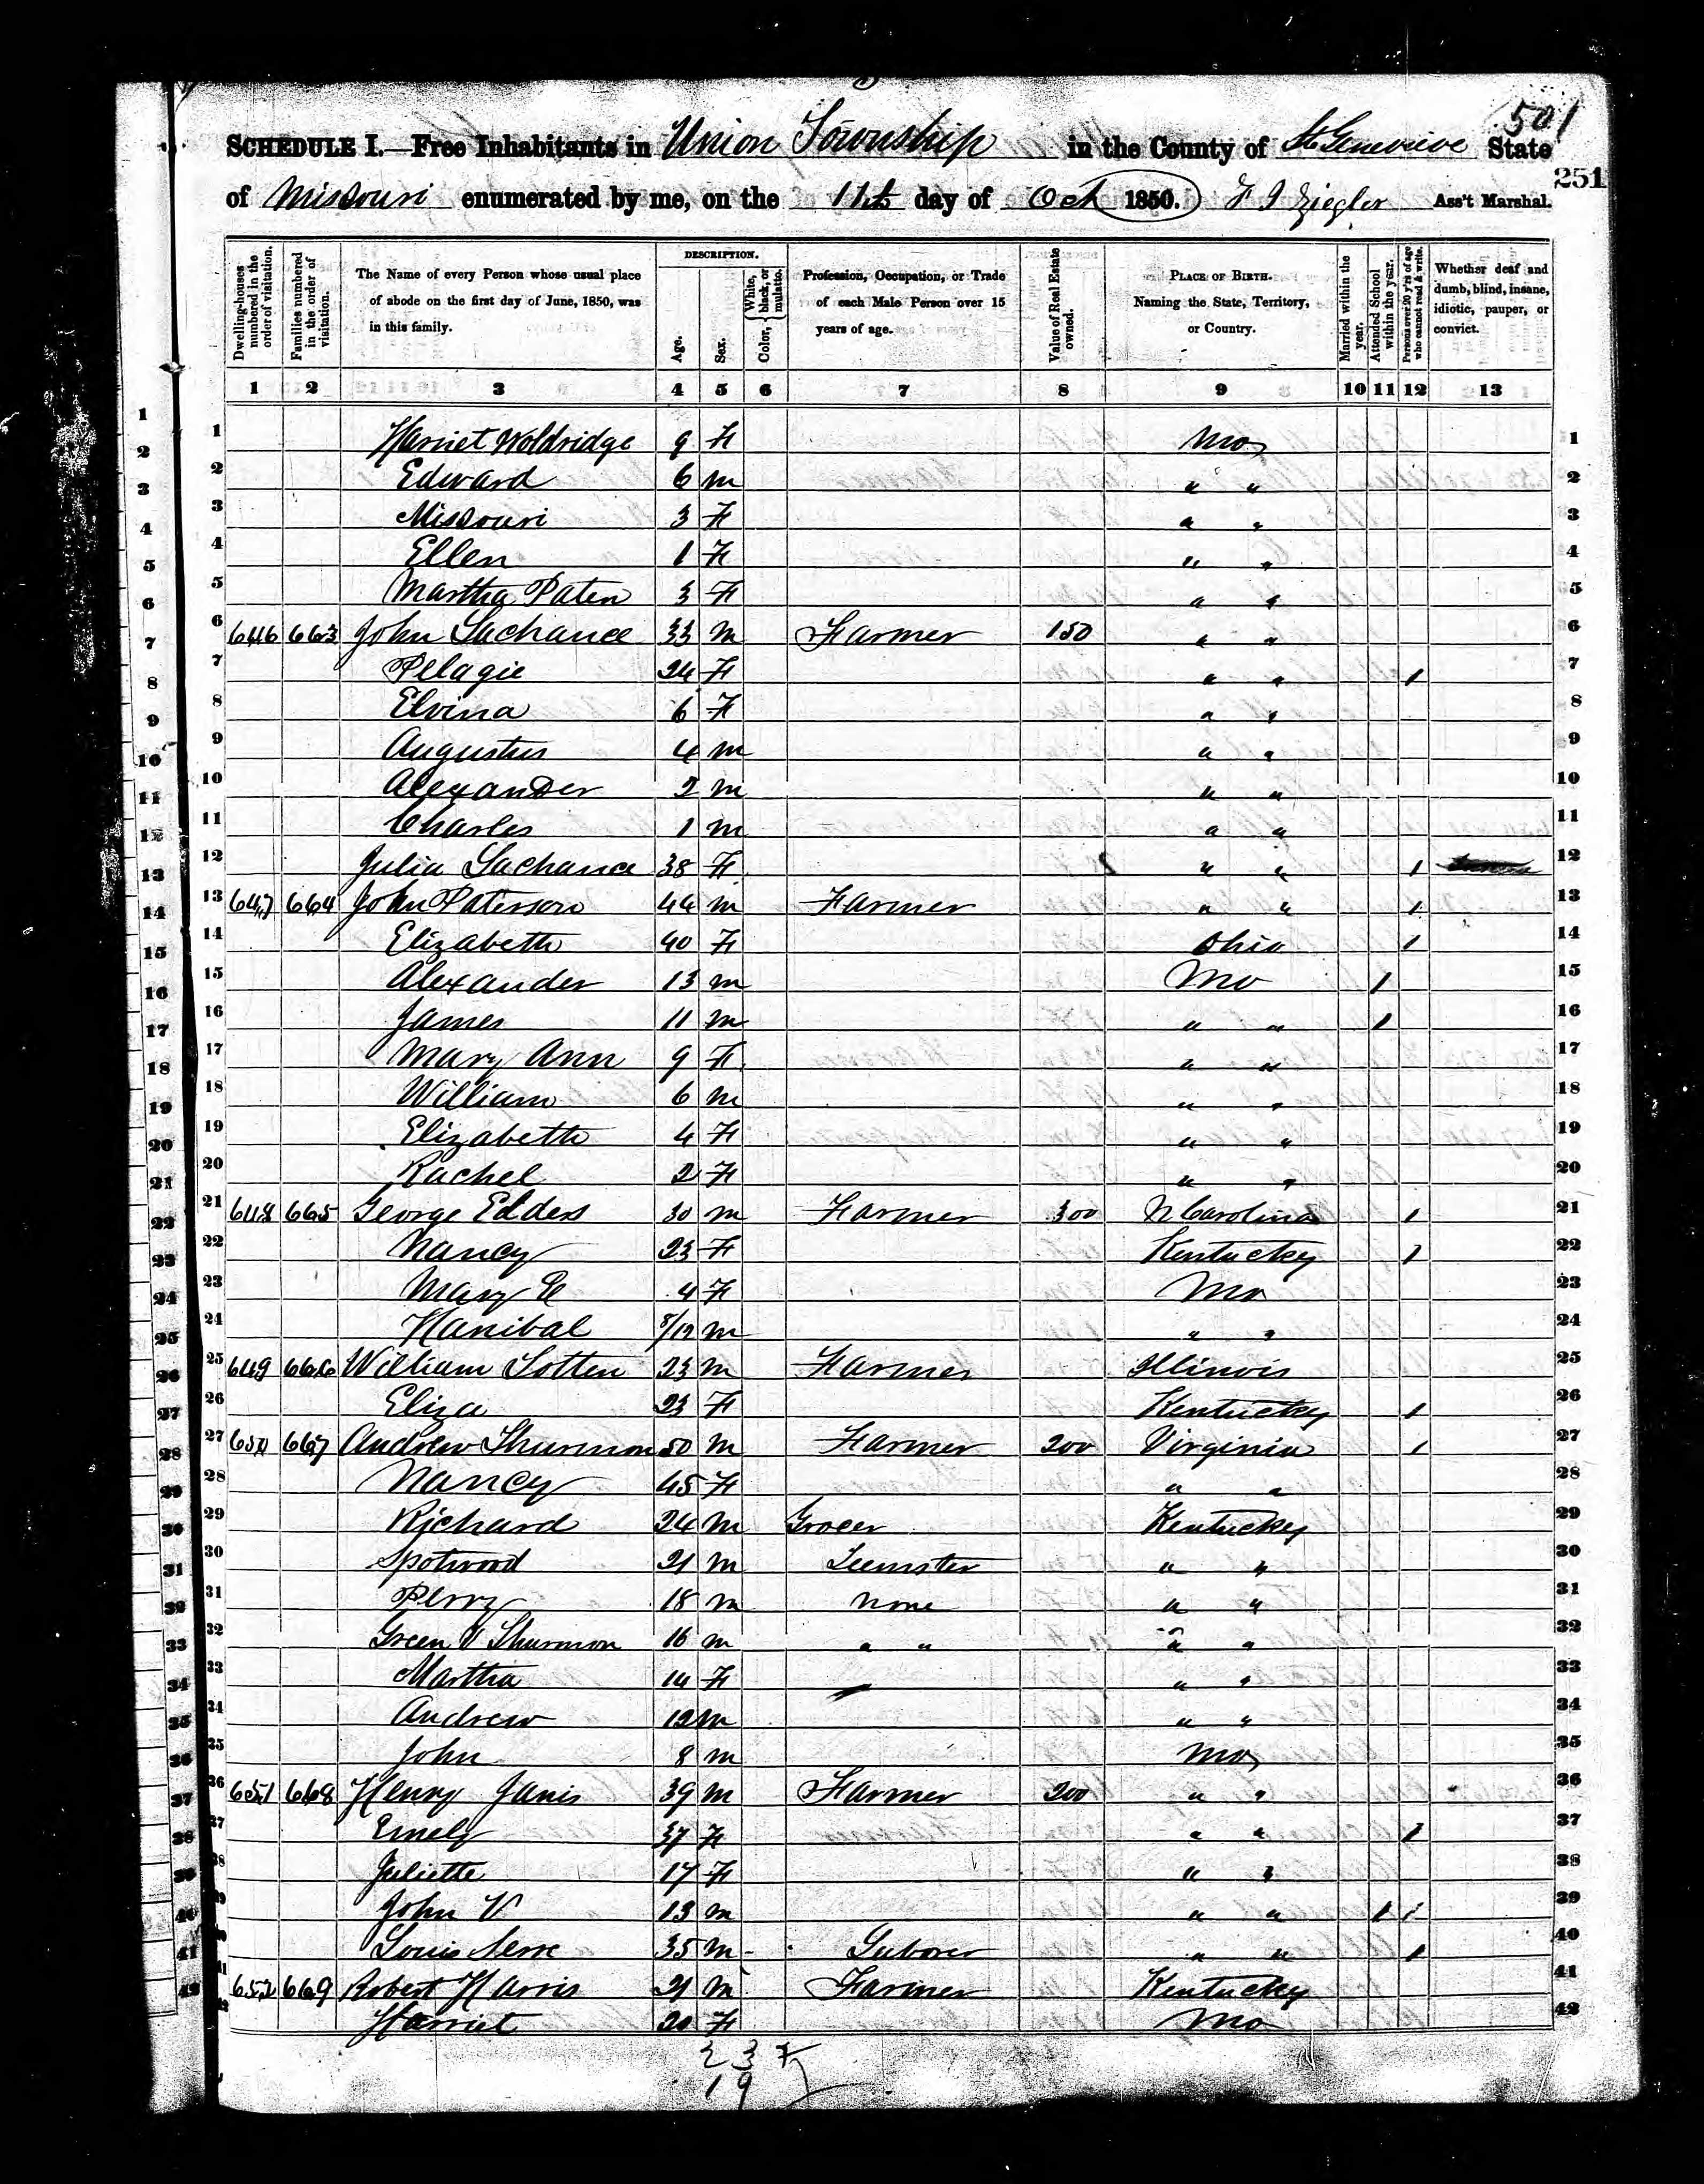 501
SCHEDULE I.—Free Inhabitants in Union Township in the County of St Genevieve State
251
of Missouri enumerated by me, on the 11th day of Oct 1850. F J Ziegler Ass't Marshal.
Dwelling-houses numbered in the order of visitation. Families numbered in the order of visitation. The Name of every Person whose usual place of abode on the first day of June, 1850, was in this family. DESCRIPTION. Age. Sex. Color, White, black, or mulatto. Profession, Occupation, or Trade of each Male Person over 15 years of age. Value of Real Estate owned. PLACE OF BIRTH. Naming the State, Territory, or Country. Married within the year. Attended School within the year. Persons over 20 y'rs of age who cannot read & write. Whether deaf and dumb, blind, insane, idiotic, pauper, or convict.
1 2 3 4 5 6 7 8 9 10 11 12 13
1 Harriet Woldridge 9 F Mo 1
2 Edward 6 m " " 2
3 Missouri 3 F " " 3
4 Ellen 1 F " " 4
5 Martha Paten 3 F " " 5
6 646 663 John Lachance 33 m Farmer 150 " " 6
7 Pelagie 24 F " " 1 7
8 Elvina 6 F " " 8
9 Augustus 4 m " " 9
10 Alexander 2 m " " 10
11 Charles 1 m " " 11
12 Julia Lachance 38 F " " 1 12
13 647 664 John Paterson 44 m Farmer " " 1 13
14 Elizabeth 40 F Ohio 1 14
15 Alexander 13 m Mo 1 15
16 James 11 m " " 1 16
17 Mary Ann 9 F " " 17
18 William 6 m " " 18
19 Elizabeth 4 F " " 19
20 Rachel 2 F " " 20
21 648 665 George Elders 30 m Farmer 300 N Carolina 1 21
22 Nancy 23 F Kentucky 1 22
23 Mary E 4 F Mo 23
24 Hanibal 8/12 m " " 24
25 649 666 William Lotten 23 m Farmer Illinois 25
26 Eliza 23 F Kentucky 1 26
27 650 667 Andrew Thurmon 50 m Farmer 200 Virginia 1 27
28 Nancy 45 F " " 28
29 Richard 24 m Grocer Kentucky 29
30 Spotwood 21 m Teemster " " 30
31 Perry 18 m None " " 31
32 Green V Thurmon 16 m " " " " 32
33 Martha 14 F " " 33
34 Andrew 12 m " " 34
35 John 8 m Mo 35
36 651 668 Henry Janis 39 m Farmer 200 " " 36
37 Emely 37 F " " 1 37
38 Juliette 17 F " " 38
39 John V 13 m " " 1 1 39
40 Louis 35 m " " 1 40
41 652 669 Robert Harris 21 m Farmer Kentucky 41
42 Harriet 20 F Mo 42
23 F
19